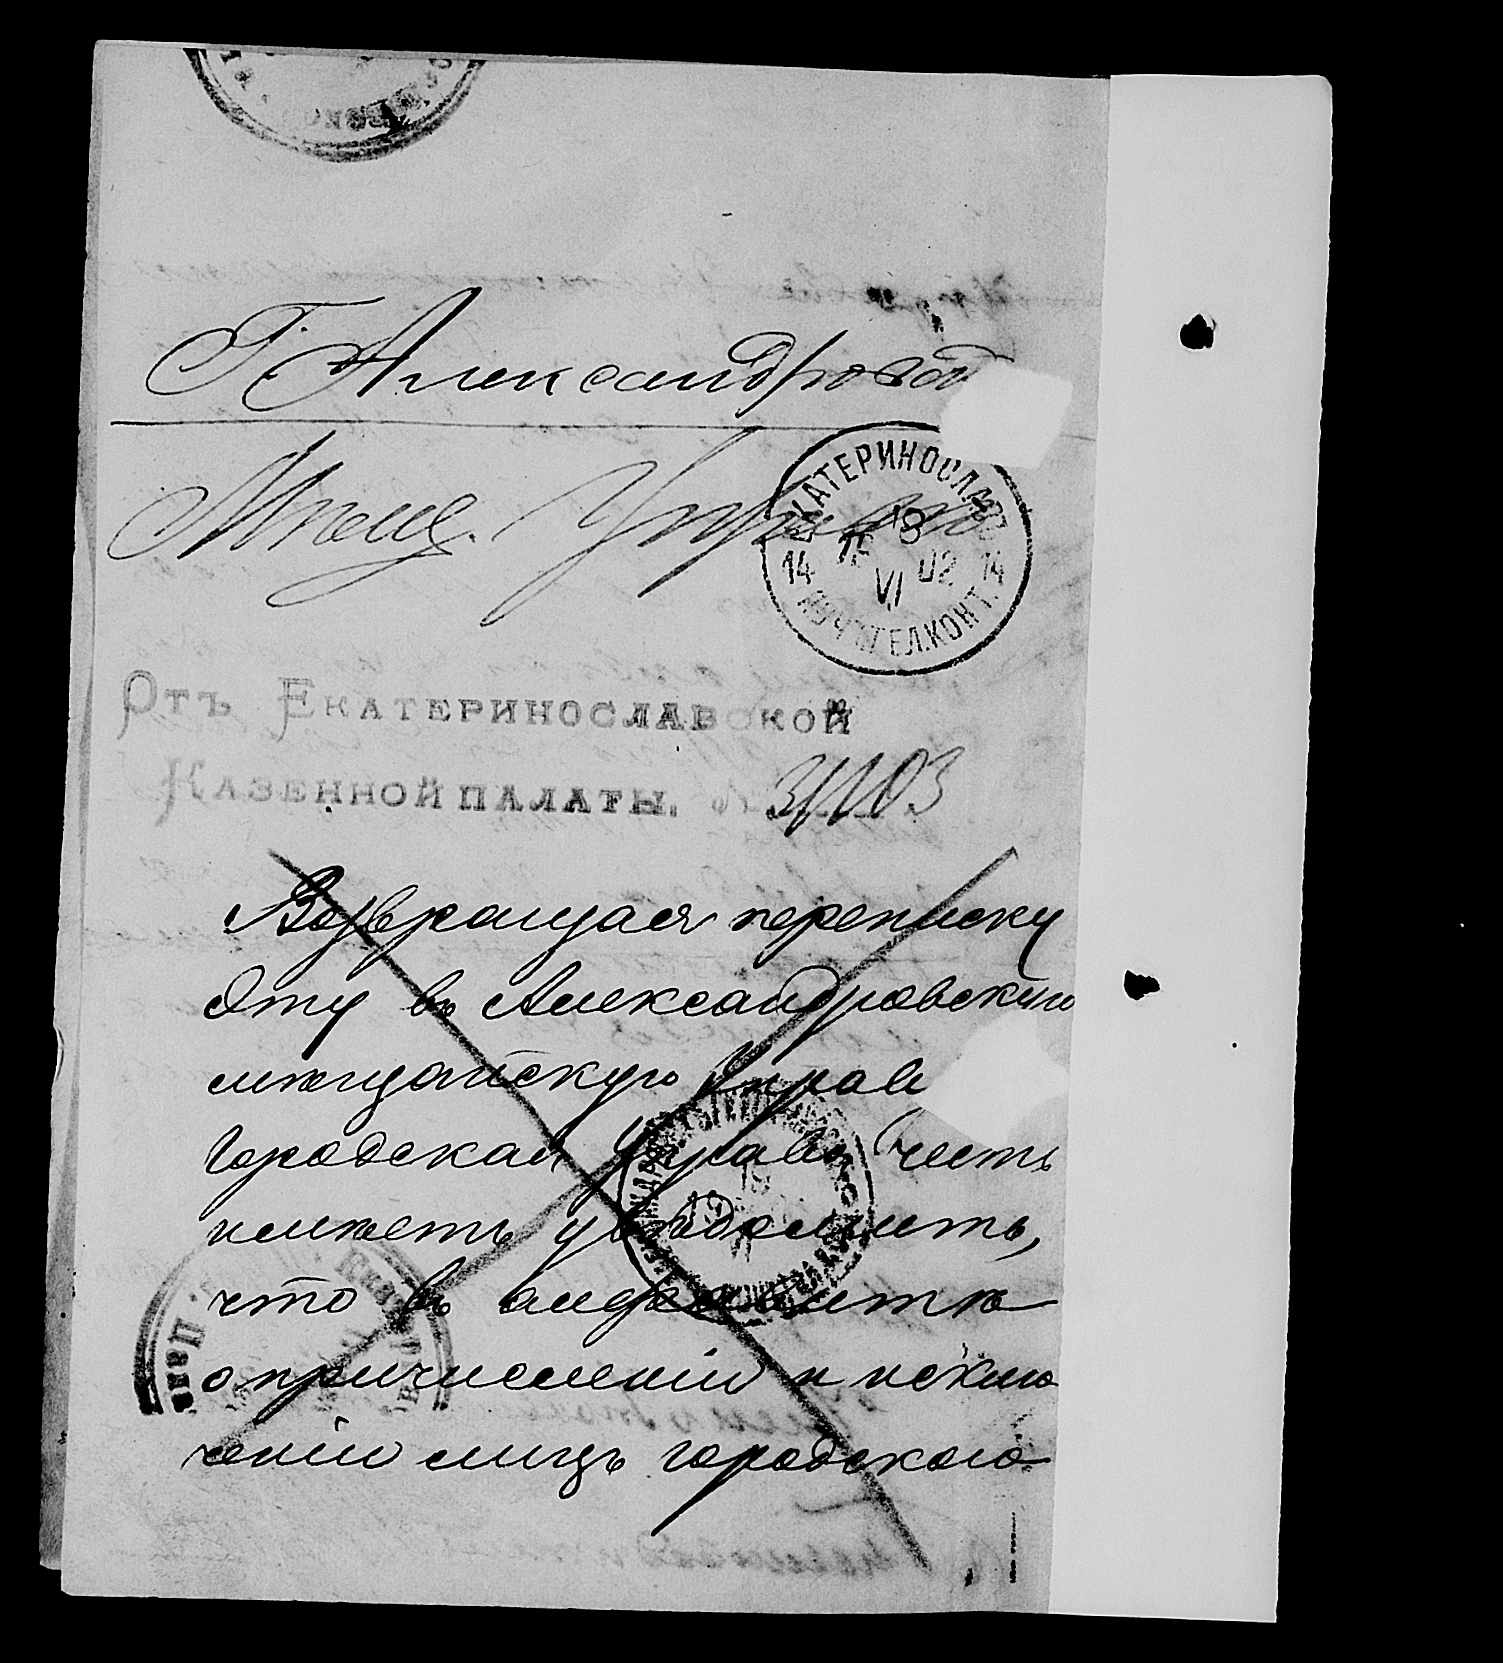 Г. Александров
Мѣщ. Управа
ЕКАТЕРИНОСЛАВЪ
14 18 VI 02 14
ПОЧТ. ТЕЛ. КОНТ.
Отъ Екатеринославской
Казенной палаты.
Возвращая переписку
эту въ Александровскую
мѣщанскую Управ
Городская Управа честь
имѣетъ увѣдомить,
что въ алфавитѣ
о причисленіи и исклю
ченіи лицъ городского